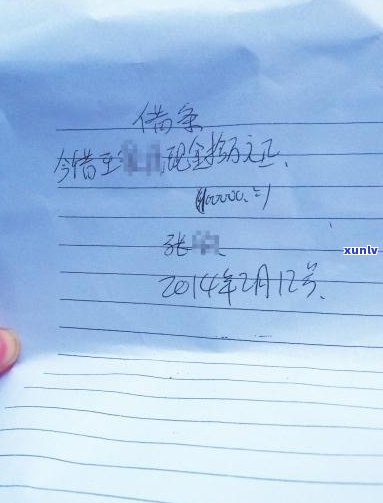 借条
今借至 现金拾万元正、
(100000.=)
张
2014年2月12号、
xunlv